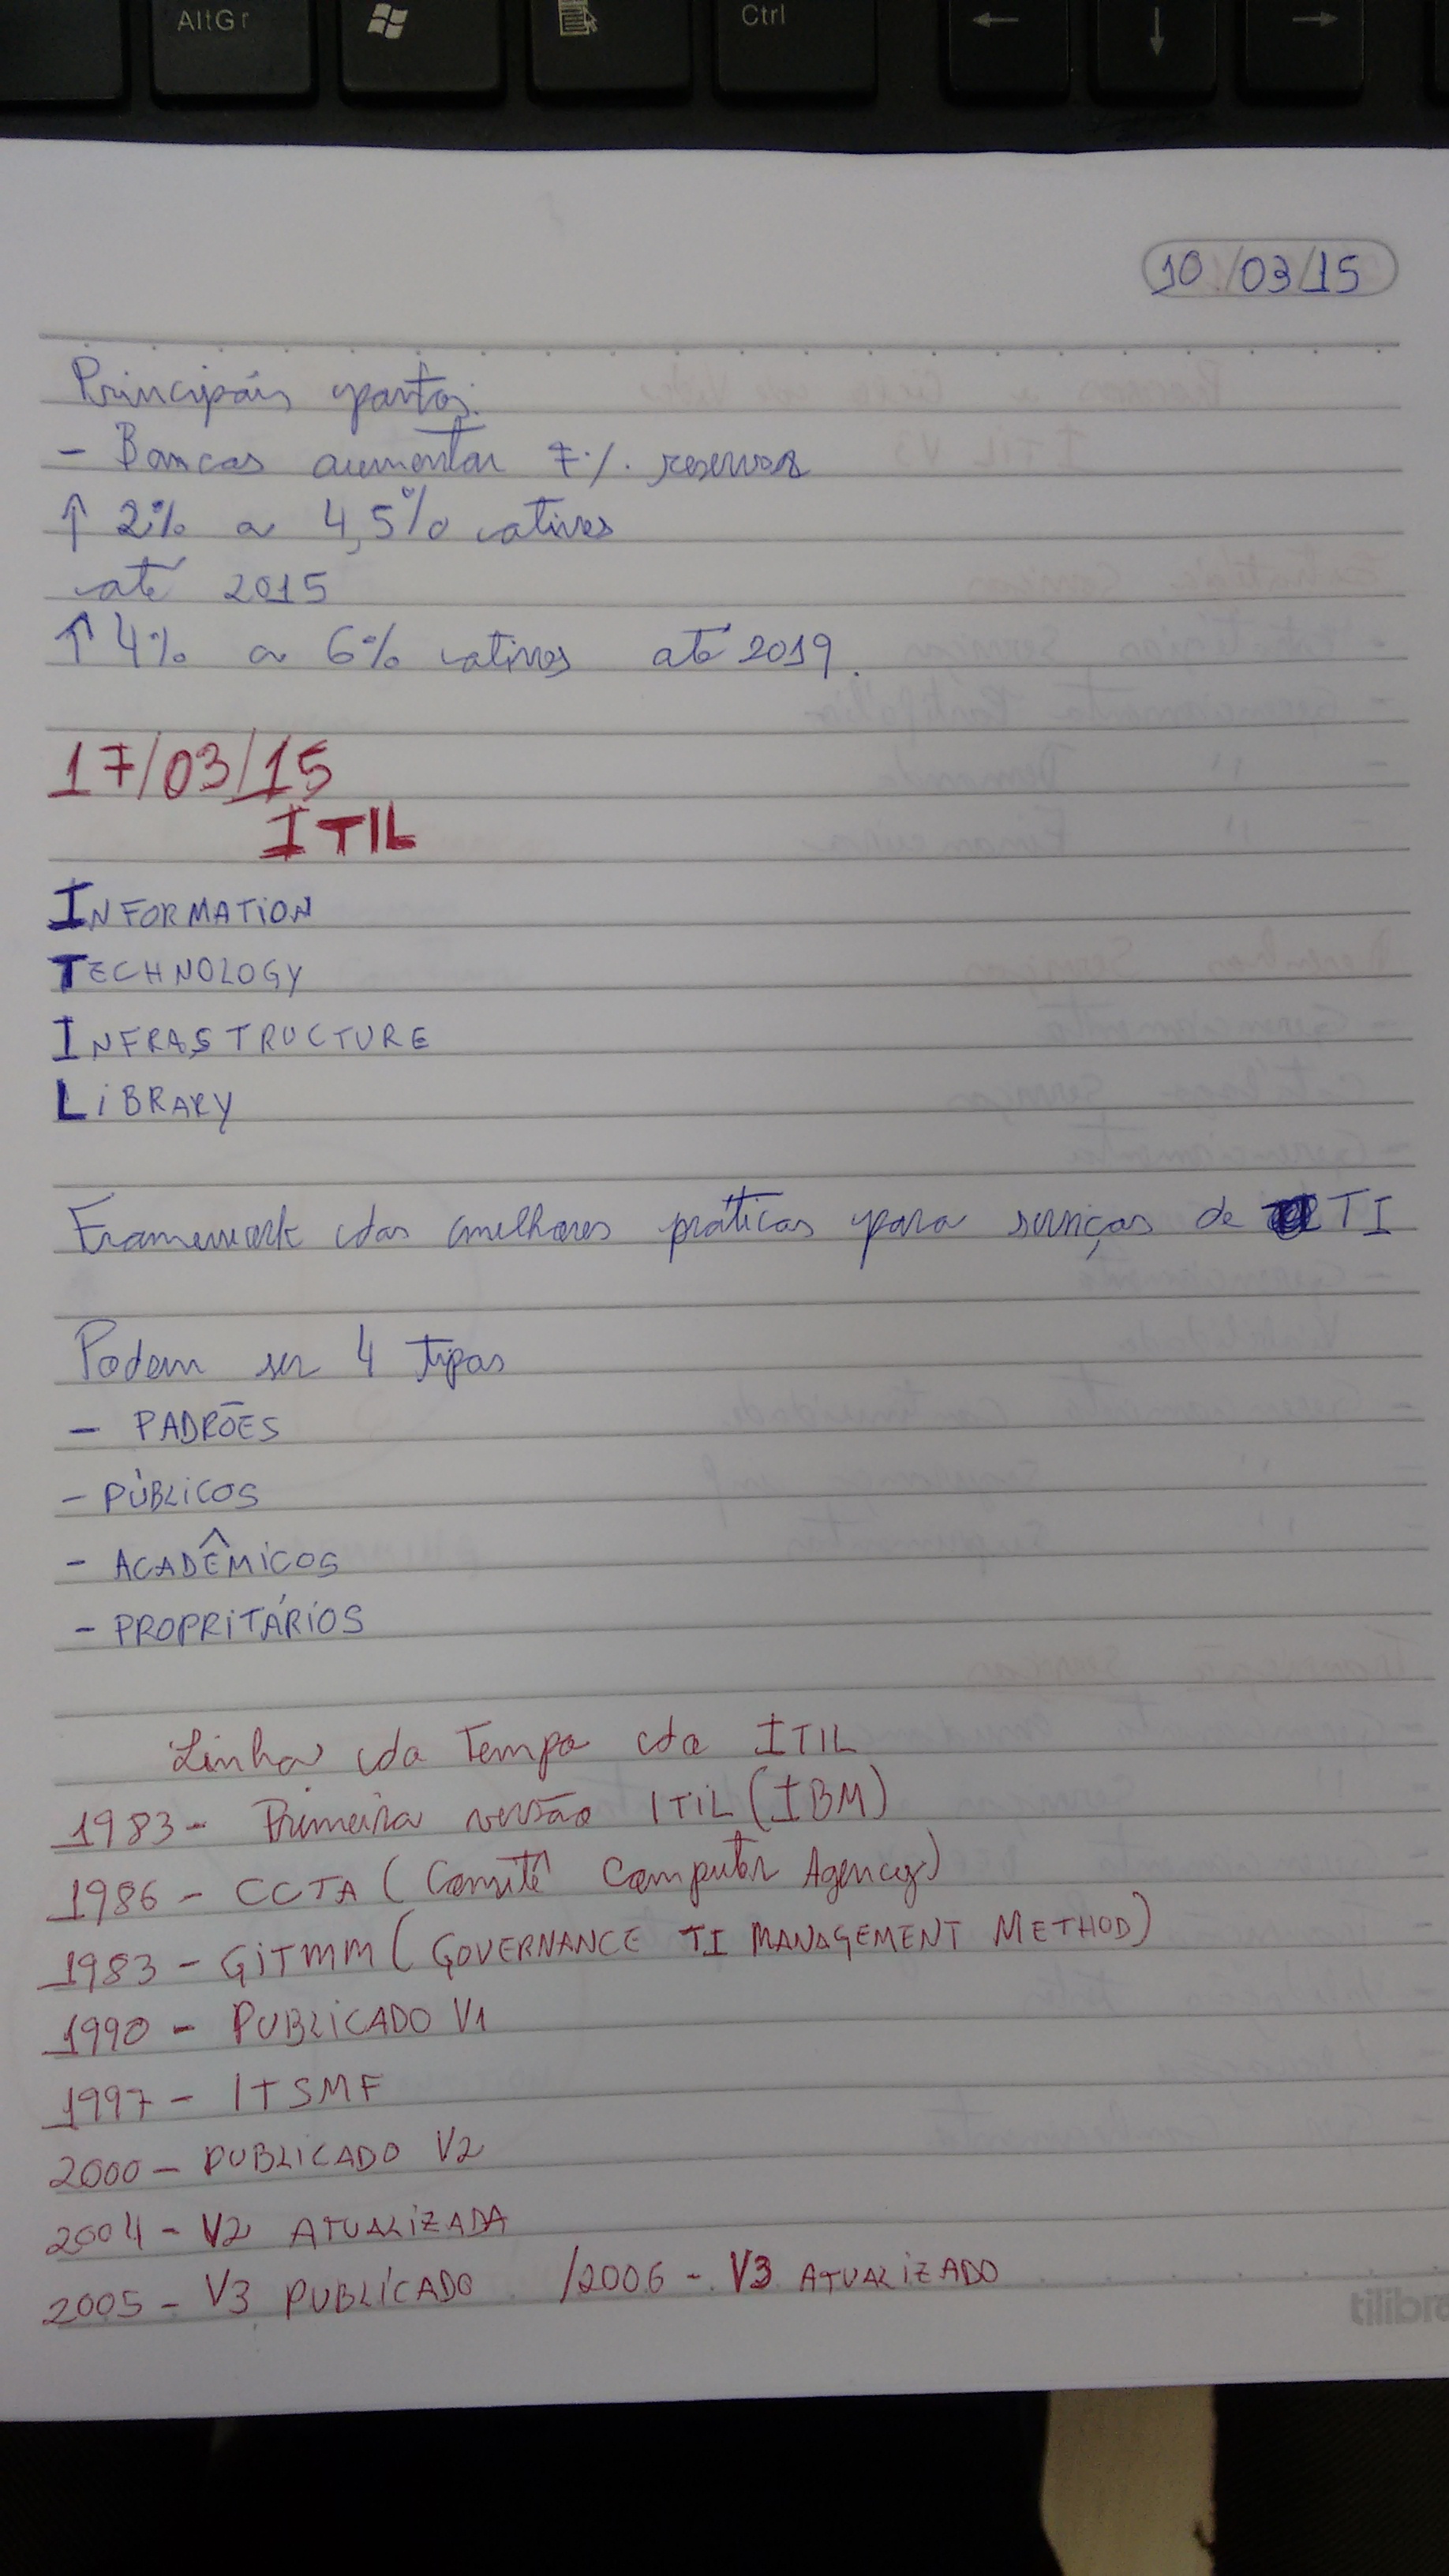 AltGr
Ctrl
10/03/15
Principais pontos:
- Bancos aumentar 7% reservas
↑ 2% a 4,5% ativos
até 2015
↑ 4% a 6% ativos até 2019.
17/03/15
ITIL
INFORMATION
TECHNOLOGY
INFRASTRUCTURE
LIBRARY
Framework das melhores práticas para serviços de TI
Podem ser 4 tipos
- PADRÕES
- PÚBLICOS
- ACADÊMICOS
- PROPRITÁRIOS
Linha do Tempo da ITIL
1983 - Primeira versão ITIL (IBM)
1986 - CCTA (Comitê Computer Agency)
1983 - GITMM (GOVERNANCE TI MANAGEMENT METHOD)
1990 - PUBLICADO V1
1997 - ITSMF
2000 - PUBLICADO V2
2004 - V2 ATUALIZADA
2005 - V3 PUBLICADO /2006 - V3 ATUALIZADO